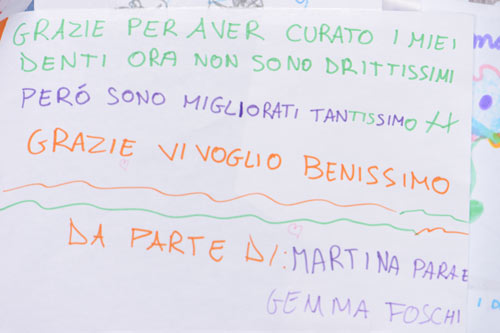 GRAZIE PER AVER CURATO I MIEI
DENTI ORA NON SONO DRITTISSIMI
PERÓ SONO MIGLIORATI TANTISSIMO
GRAZIE VI VOGLIO BENISSIMO
DA PARTE DI: MARTINA
GEMMA FOSCHI